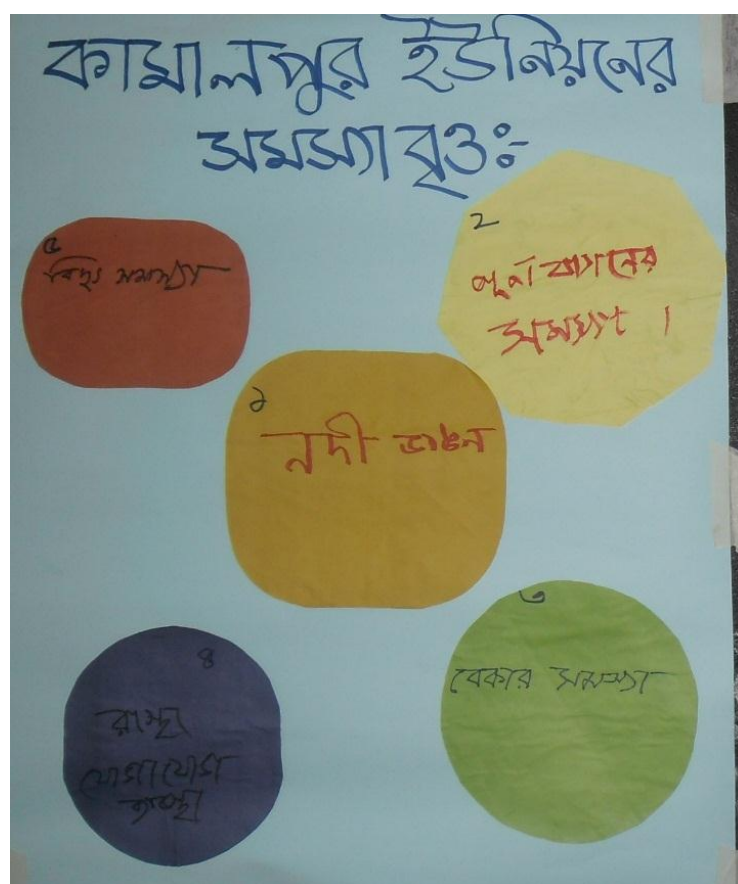 কামালপুর ইউনিয়নের
সমস্যা বৃওঃ-
৫
বিদ্যু সমস্যা
২
পূর্নবাসনের
সমস্যা ।
১
নদী ভাঙন
৪
রাস্তা
যোগাযোগ
ব্যবস্থা
৩
বেকার সমস্যা